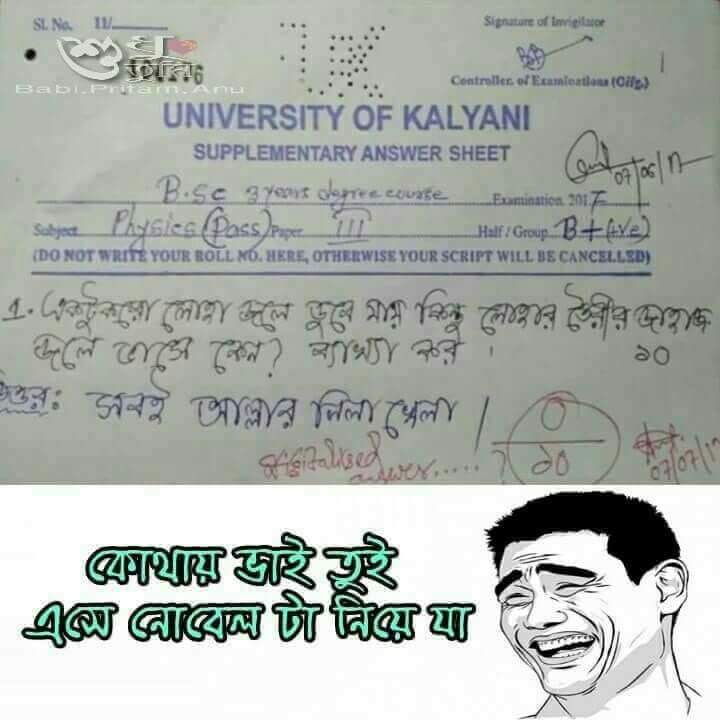 Sl. No. 11/
Signature of Invigilator
শুধু
Babi.Pritam.Anu
Controller of Examinations (Offg.)
UNIVERSITY OF KALYANI
SUPPLEMENTARY ANSWER SHEET
07/06/17
B.Sc 3 years degree course
Examination 2017
Subject Physics (Pass) Paper III Half / Group B+(+ve)
(DO NOT WRITE YOUR ROLL NO. HERE, OTHERWISE YOUR SCRIPT WILL BE CANCELLED)
1. একটুকরো লোহা জলে ডুবে যায় কিন্তু লোহার তৈরীর জাহাজ
জলে ভাসে কেন? ব্যাখ্যা কর। ১০
উত্তর: সবই আল্লার লিলা খেলা!
answer.....?
0
১০
07/07/17
কোথায় ভাই তুই
এসে নোবেল টা নিয়ে যা